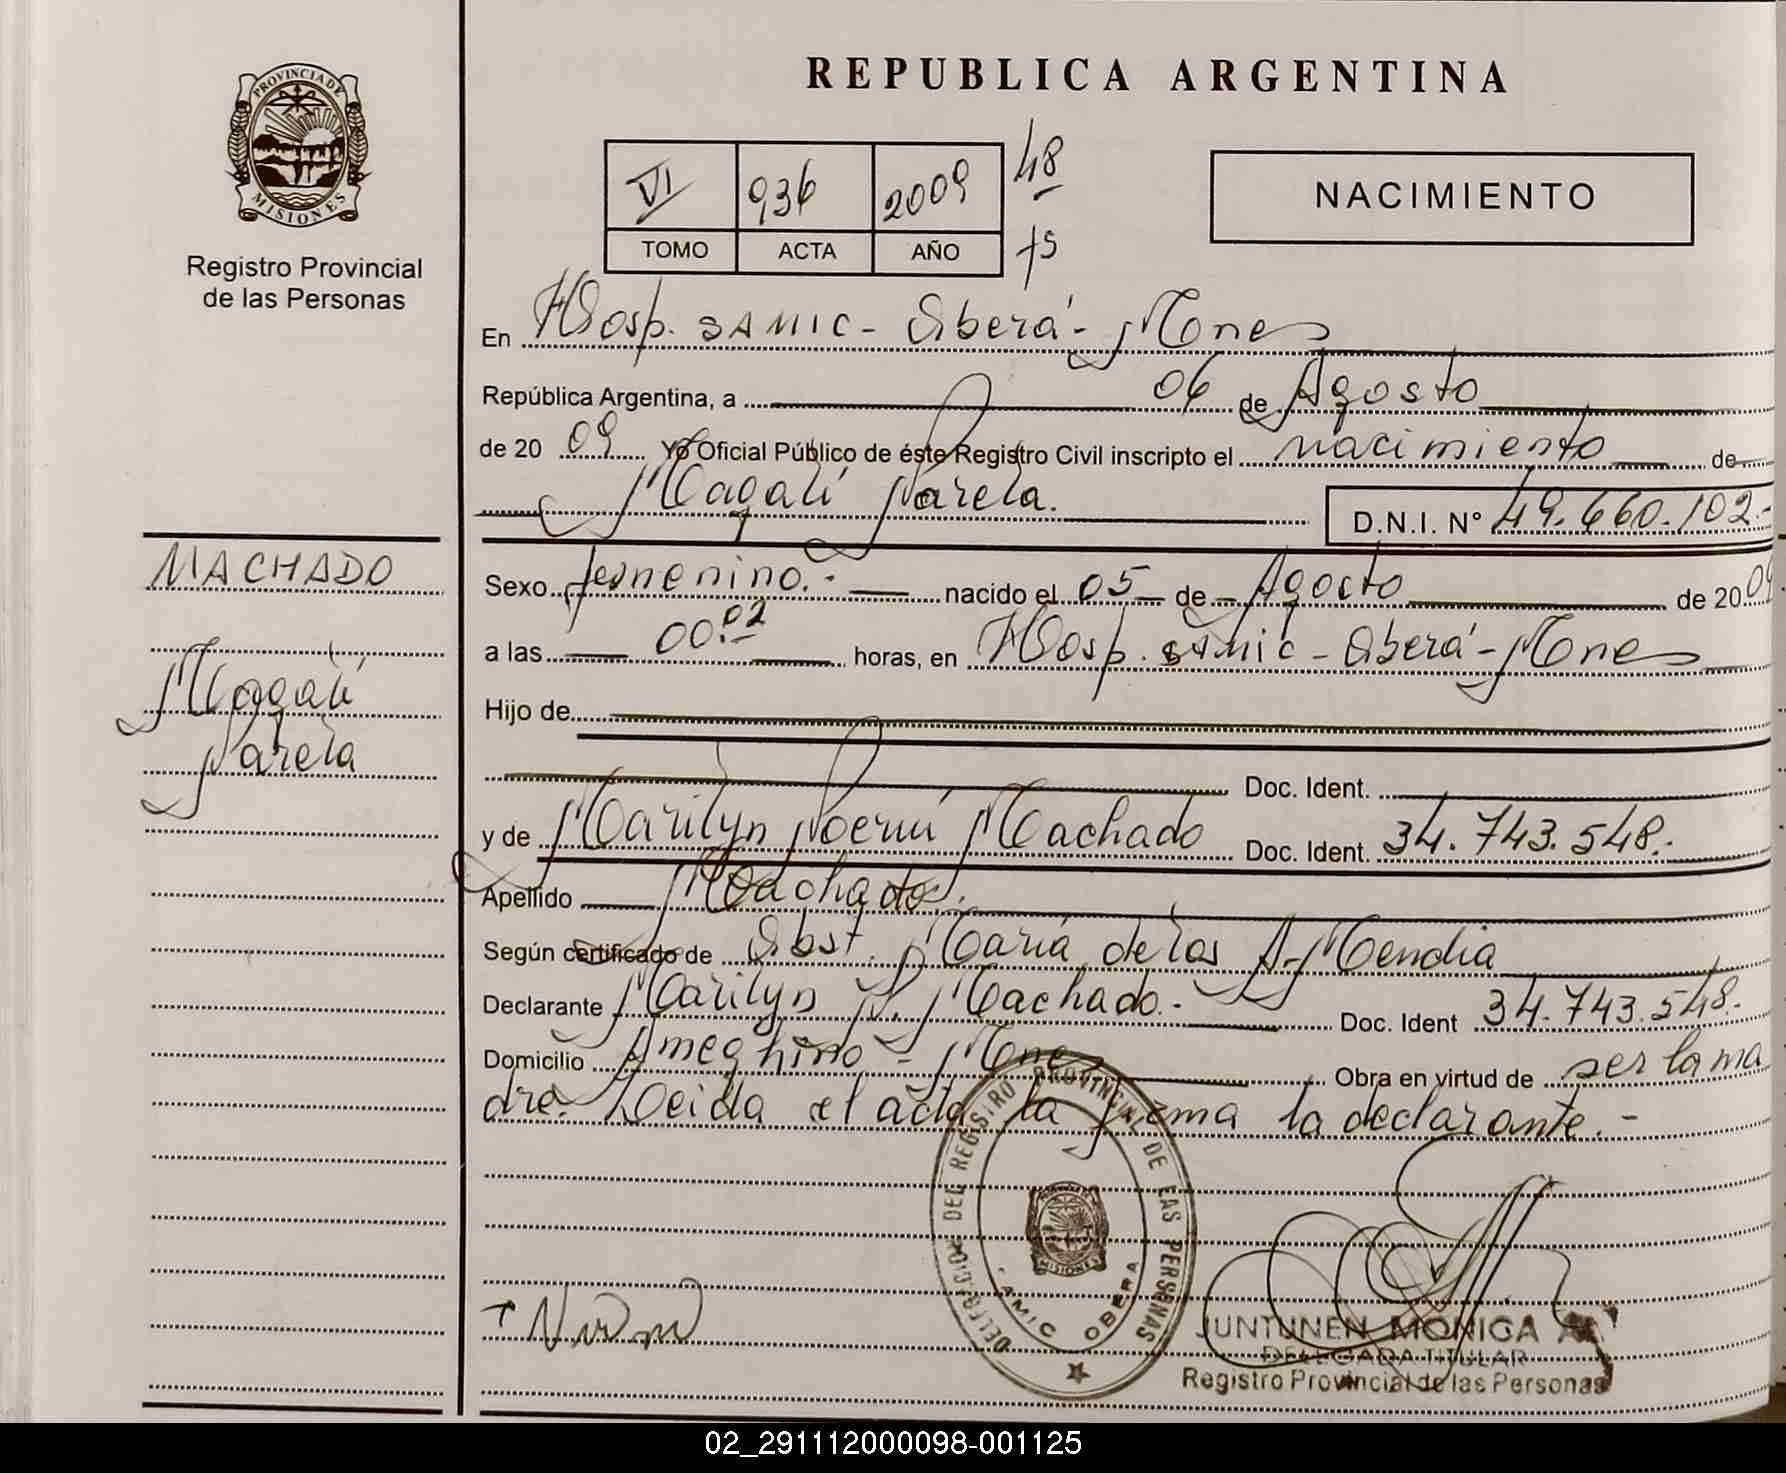 PROVINCIA DE
MISIONES
Registro Provincial
de las Personas
REPUBLICA ARGENTINA
VI 936 2009 48
TOMO ACTA AÑO 75
NACIMIENTO
En Hosp. SAMIC - Oberá - Mnes
República Argentina, a 06 de Agosto
de 20 09 Yo Oficial Público de éste Registro Civil inscripto el nacimiento de
Magalí
D.N.I. N° 49.660.102.-
MACHADO
Magalí
Sexo femenino.- nacido el 05 de Agosto de 2009
a las 00:02 horas, en Hosp. SAMIC - Oberá - Mnes
Hijo de
Doc. Ident.
y de Marilyn Noemí Machado Doc. Ident. 34.743.548.-
Apellido Machado.
Según certificado de Obst. María de los A. Mendia
Declarante Marilyn N. Machado.- Doc. Ident 34.743.548.-
Domicilio Ameghino - Mnes Obra en virtud de ser la ma
dre. Leida el acta la firma la declarante.-
DELEGACION DEL REGISTRO PROVINCIAL DE LAS PERSONAS
MISIONES
SAMIC OBERA
JUNTUNEN MONICA
DELEGADA TITULAR
Registro Provincial de las Personas
02_291112000098-001125